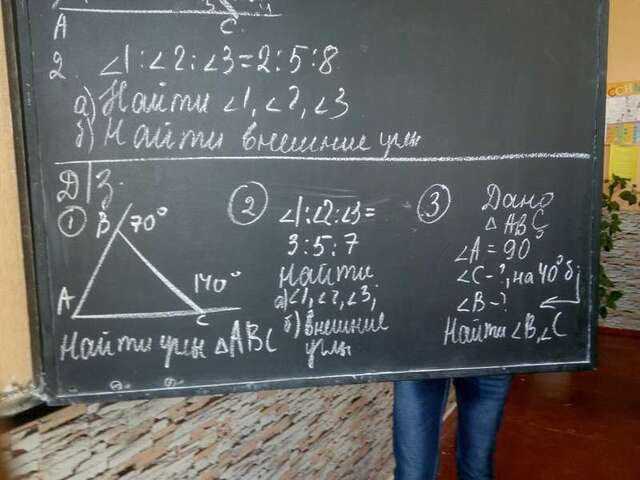 A C
2. ∠1:∠2:∠3=2:5:8
а) Найти ∠1,∠2,∠3
б) Найти внешние углы
Д/З.
① B 70°
140°
A C
Найти углы △ABC
② ∠1:∠2:∠3=
3:5:7
найти
а) ∠1,∠2,∠3;
б) внешние
углы
③ Дано
△ABC;
∠A=90
∠C-?, на 40° б
∠B-?
Найти ∠B,∠C